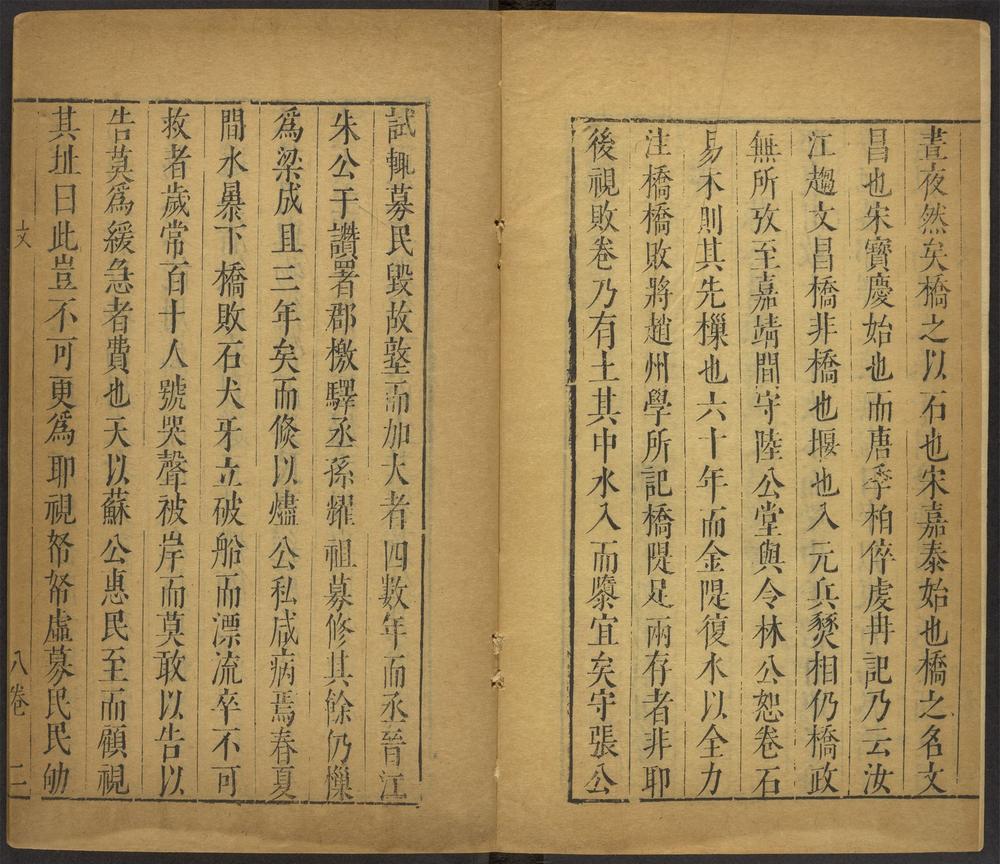 晝夜然矣橋之以石也宋嘉泰始也橋之名文
昌也宋寶慶始也而唐季柏倅虔冉記乃云汝
江趨文昌橋非橋也堰也入元兵燹相仍橋政
無所攷至嘉靖間守陸公堂與令林公恕卷石
易木則其先樔也六十年而金隄復水以全力
注橋橋敗將趙州學所記橋隄足兩存者非耶
後視敗卷乃有土其中水入而隳宜矣守張公
試輒募民毀故墪而加大者四數年而丞晉江
朱公于讚署郡檄驛丞孫燿祖募修其餘仍樔
爲梁成且三年矣而倐以燼公私咸病焉春夏
間水暴下橋敗石犬牙立破船而漂流卒不可
救者歲常百十人號哭聲被岸而莫敢以告以
告莫爲緩急者費也天以蘇公惠民至而顧視
其址曰此豈不可更爲耶視帑帑虛募民民劬
文 八卷 二